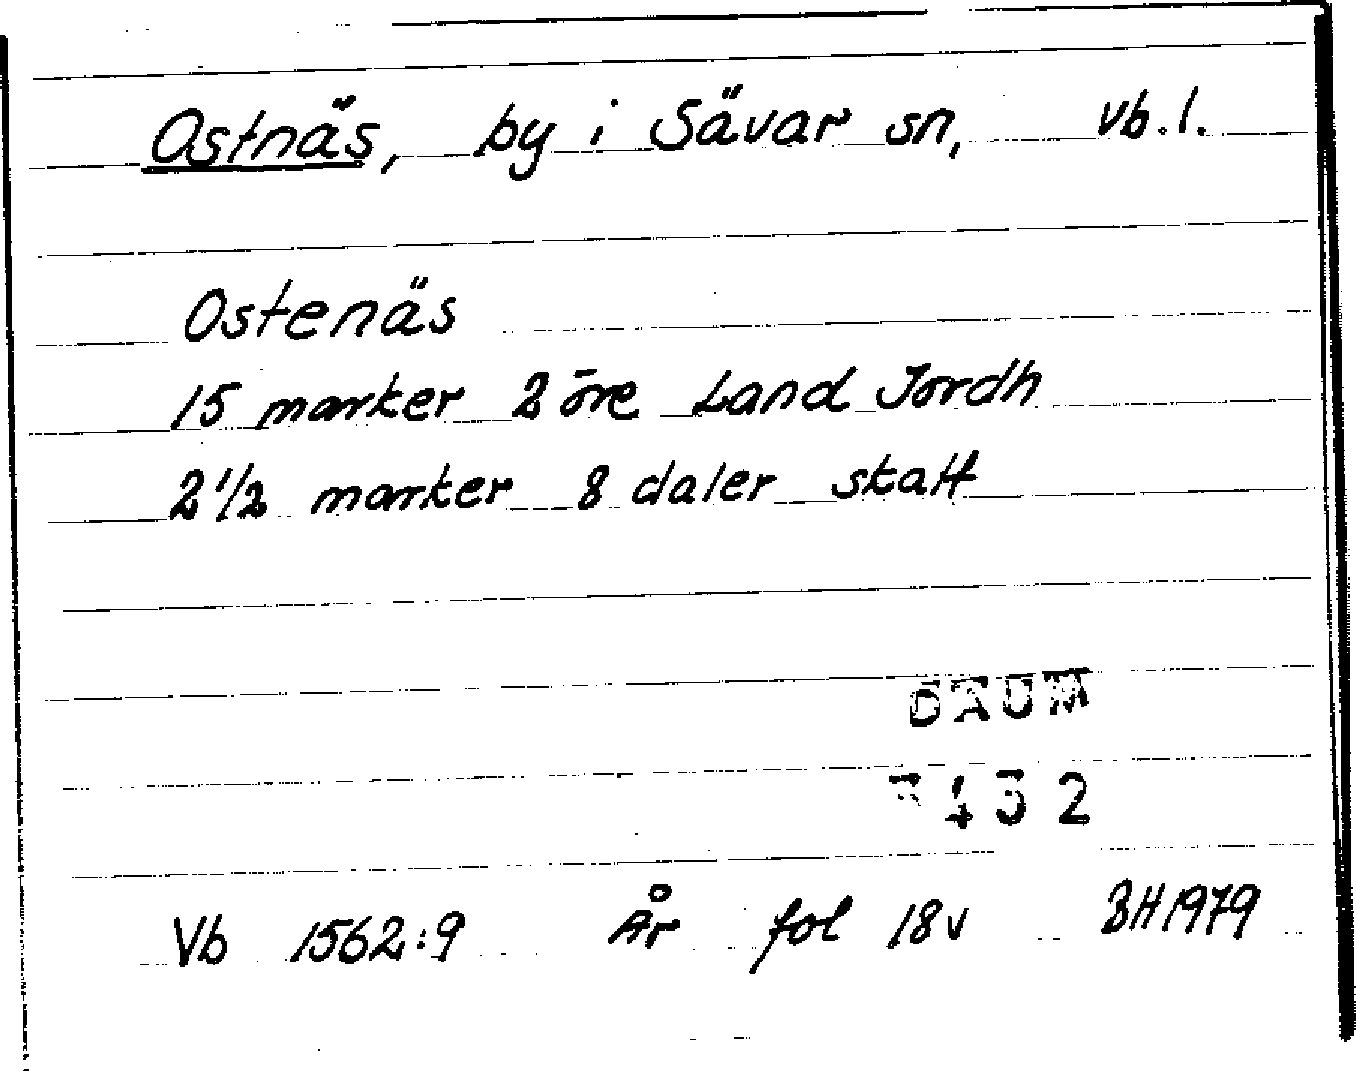 Ostnäs, by i Sävar sn, vb.l.
Ostenäs
15 marker 2 öre Land Jordh
2 1/2 marker 8 daler skatt
DAUM
3432
Vb 1562:9 År fol 18v BH 1979